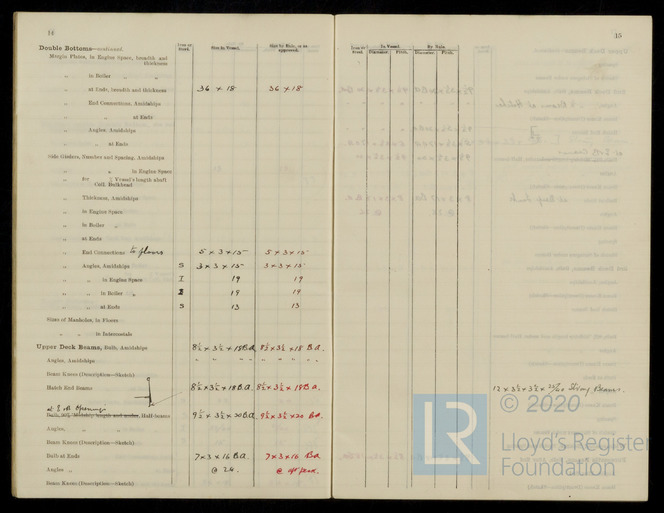 14
Double Bottoms—continued.
Iron or Steel.
Size in Vessel.
Size by Rule, or as approved.
Margin Plates, in Engine Space, breadth and thickness
„ in Boiler „ „
„ at Ends, breadth and thickness 36 × 18 36 × 18
„ End Connections, Amidships
„ „ at Ends
„ Angles, Amidships
„ „ at Ends
Side Girders, Number and Spacing, Amidships
„ „ in Engine Space
„ for Vessel's length abaft Coll. Bulkhead
„ Thickness, Amidships
„ in Engine Space
„ in Boiler „
„ at Ends
„ End Connections to floors 5 × 3 × 15 5 × 3 × 15
„ Angles, Amidships S 3 × 3 × 15 3 × 3 × 15
„ „ in Engine Space I 19 19
„ „ in Boiler „ I 19 19
„ „ at Ends S 13 13
Sizes of Manholes, in Floors
„ „ in Intercostals
Upper Deck Beams, Bulb, Amidships 8½ × 3½ × 18 B.A. 8½ × 3½ × 18 B.A.
Angles, Amidships „ „ „ „ „ „ „
Beam Knees (Description—Sketch)
Hatch End Beams 8½ × 3½ × 18 B.A. 8½ × 3½ × 18 B.A.
at E & B Openings
Half-beams 9½ × 3½ × 20 B.A. 9½ × 3½ × 20 B.A.
Angles, „ „
Beam Knees (Description—Sketch)
Bulb at Ends 7 × 3 × 16 B.A. 7 × 3 × 16 B.A.
Angles „ @ 24. @ aft peak.
Beam Knees (Description—Sketch)
15
Iron or Steel.
In Vessel.
By Rule.
Diameter. Pitch. Diameter. Pitch.
12 × 3½ × 3½ × Strong Beams.
© 2020
LR
Lloyd's Register
Foundation